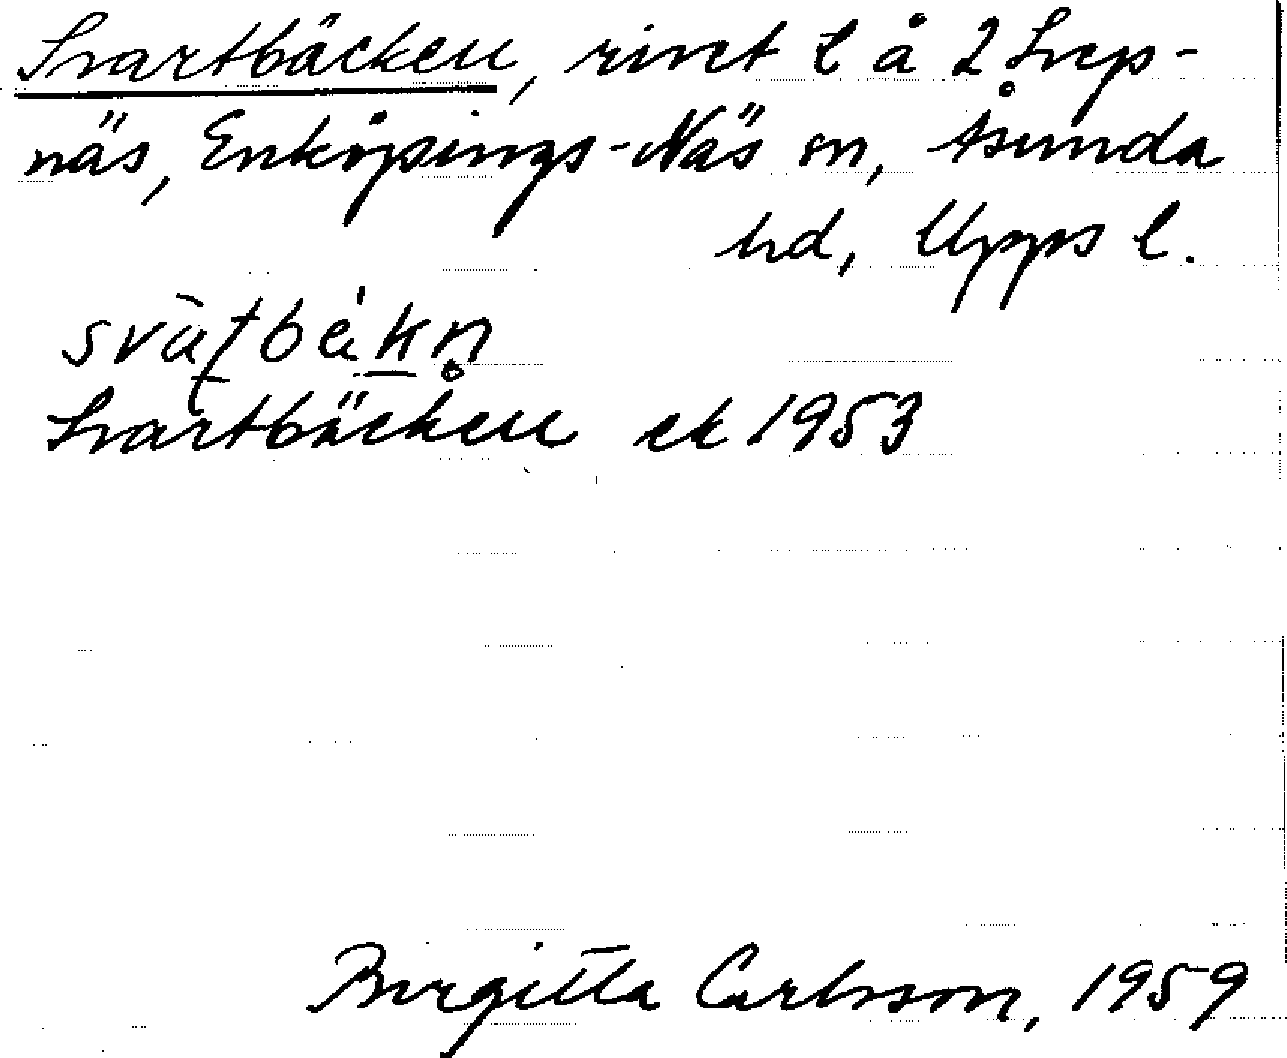 Svartbäcken, rivet l å 2 Svep-
näs, Enköpings-Näs sn, Åsunda
hd, Upps l.
Svartbäcken ek 1953
Birgitta Carlsson, 1959